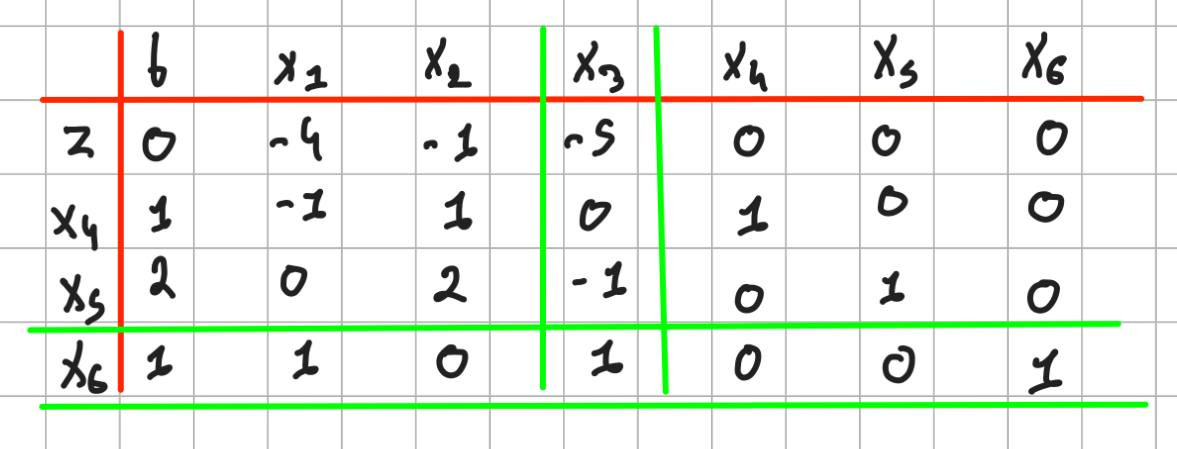 b x1 x2 x3 x4 x5 x6
z 0 -4 -1 -5 0 0 0
x4 1 -1 1 0 1 0 0
x5 2 0 2 -1 0 1 0
x6 1 1 0 1 0 0 1